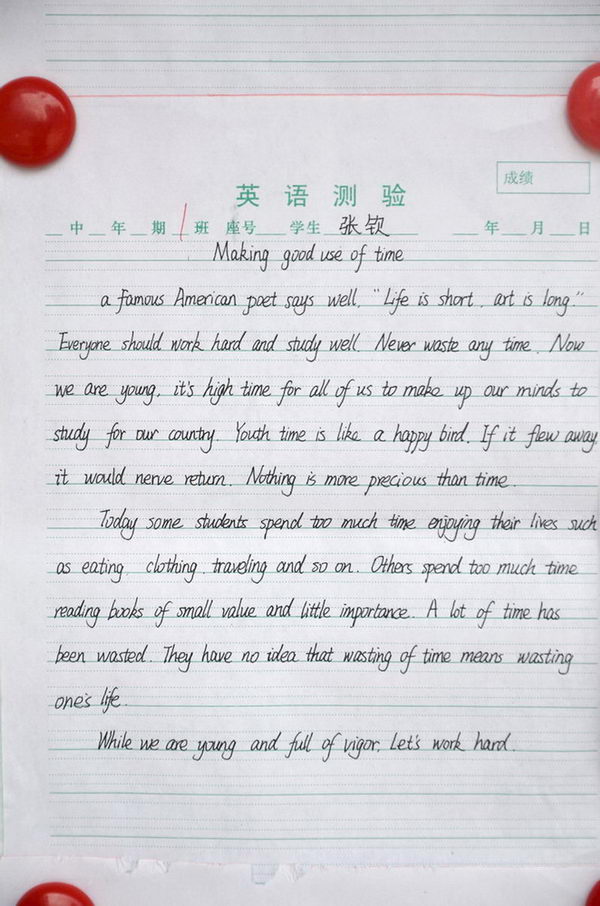 成绩
英语测验
中 年 期 1 班 座号 学生 张钦 年 月 日
Making good use of time
a famous American poet says well, "Life is short, art is long."
Everyone should work hard and study well. Never waste any time. Now
we are young, it's high time for all of us to make up our minds to
study for our country. Youth time is like a happy bird. If it flew away
it would nerve return. Nothing is more precious than time.
Today some students spend too much time enjoying their lives such
as eating, clothing, traveling and so on. Others spend too much time
reading books of small value and little importance. A lot of time has
been wasted. They have no idea that wasting of time means wasting
one's life.
While we are young and full of vigor, Let's work hard.